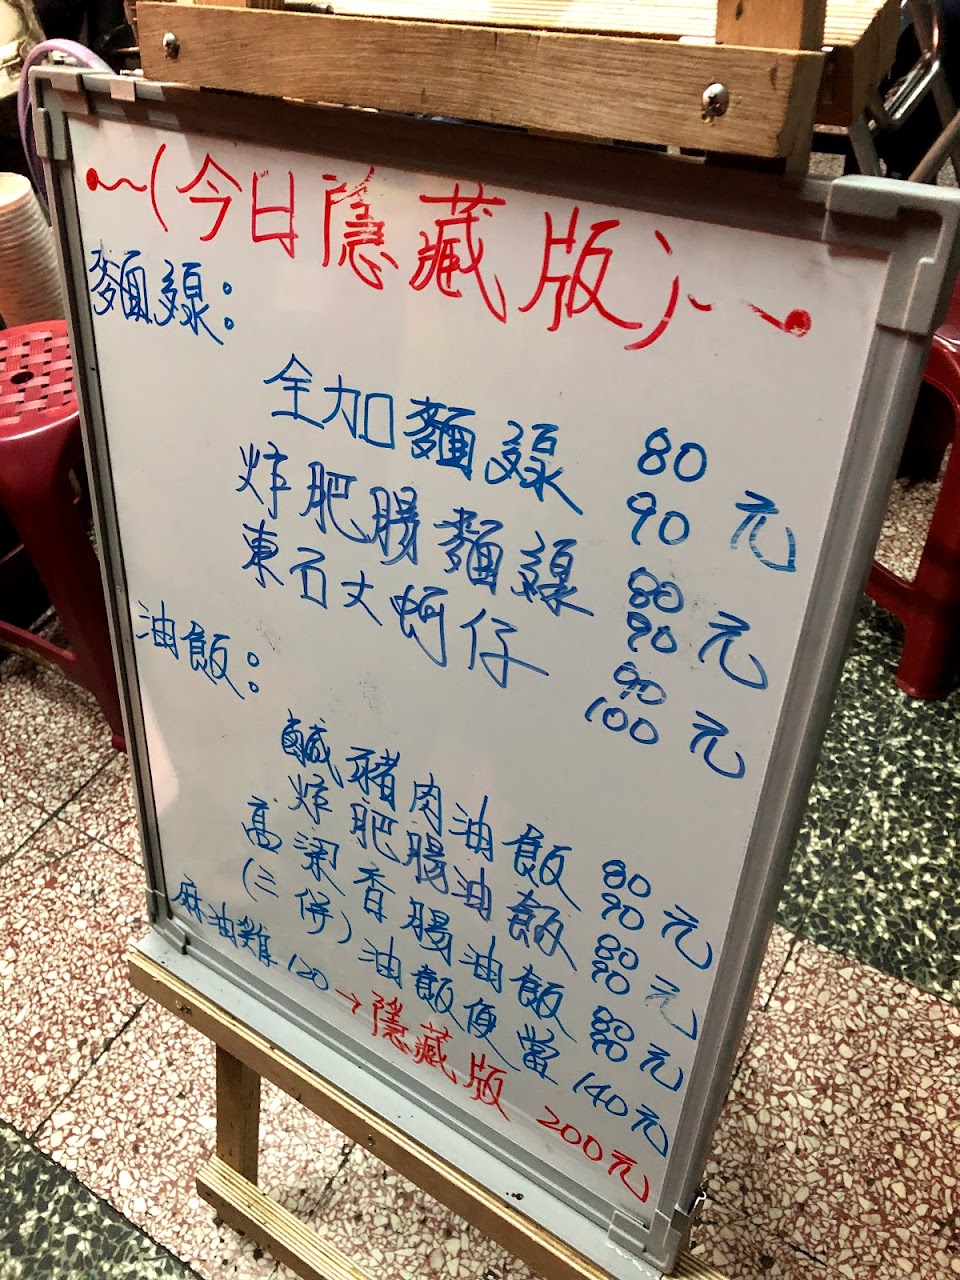 (今日隱藏版)
麵線:
全加麵線 80 90 元
炸肥腸麵線 80 90 元
東石大蚵仔 90 100 元
油飯:
鹹豬肉油飯 80 90 元
炸肥腸油飯 80 90 元
高梁香腸油飯 80 90 元
(三併)油飯便當 140元
麻油雞 120 → 隱藏版 200元